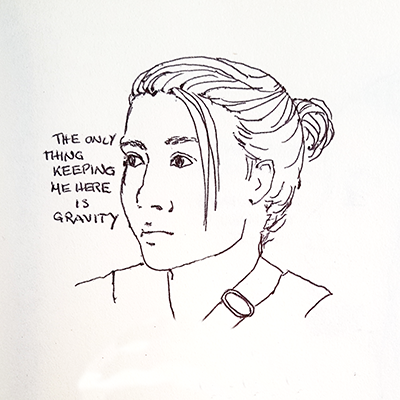 THE ONLY
THING
KEEPING
ME HERE
IS
GRAVITY